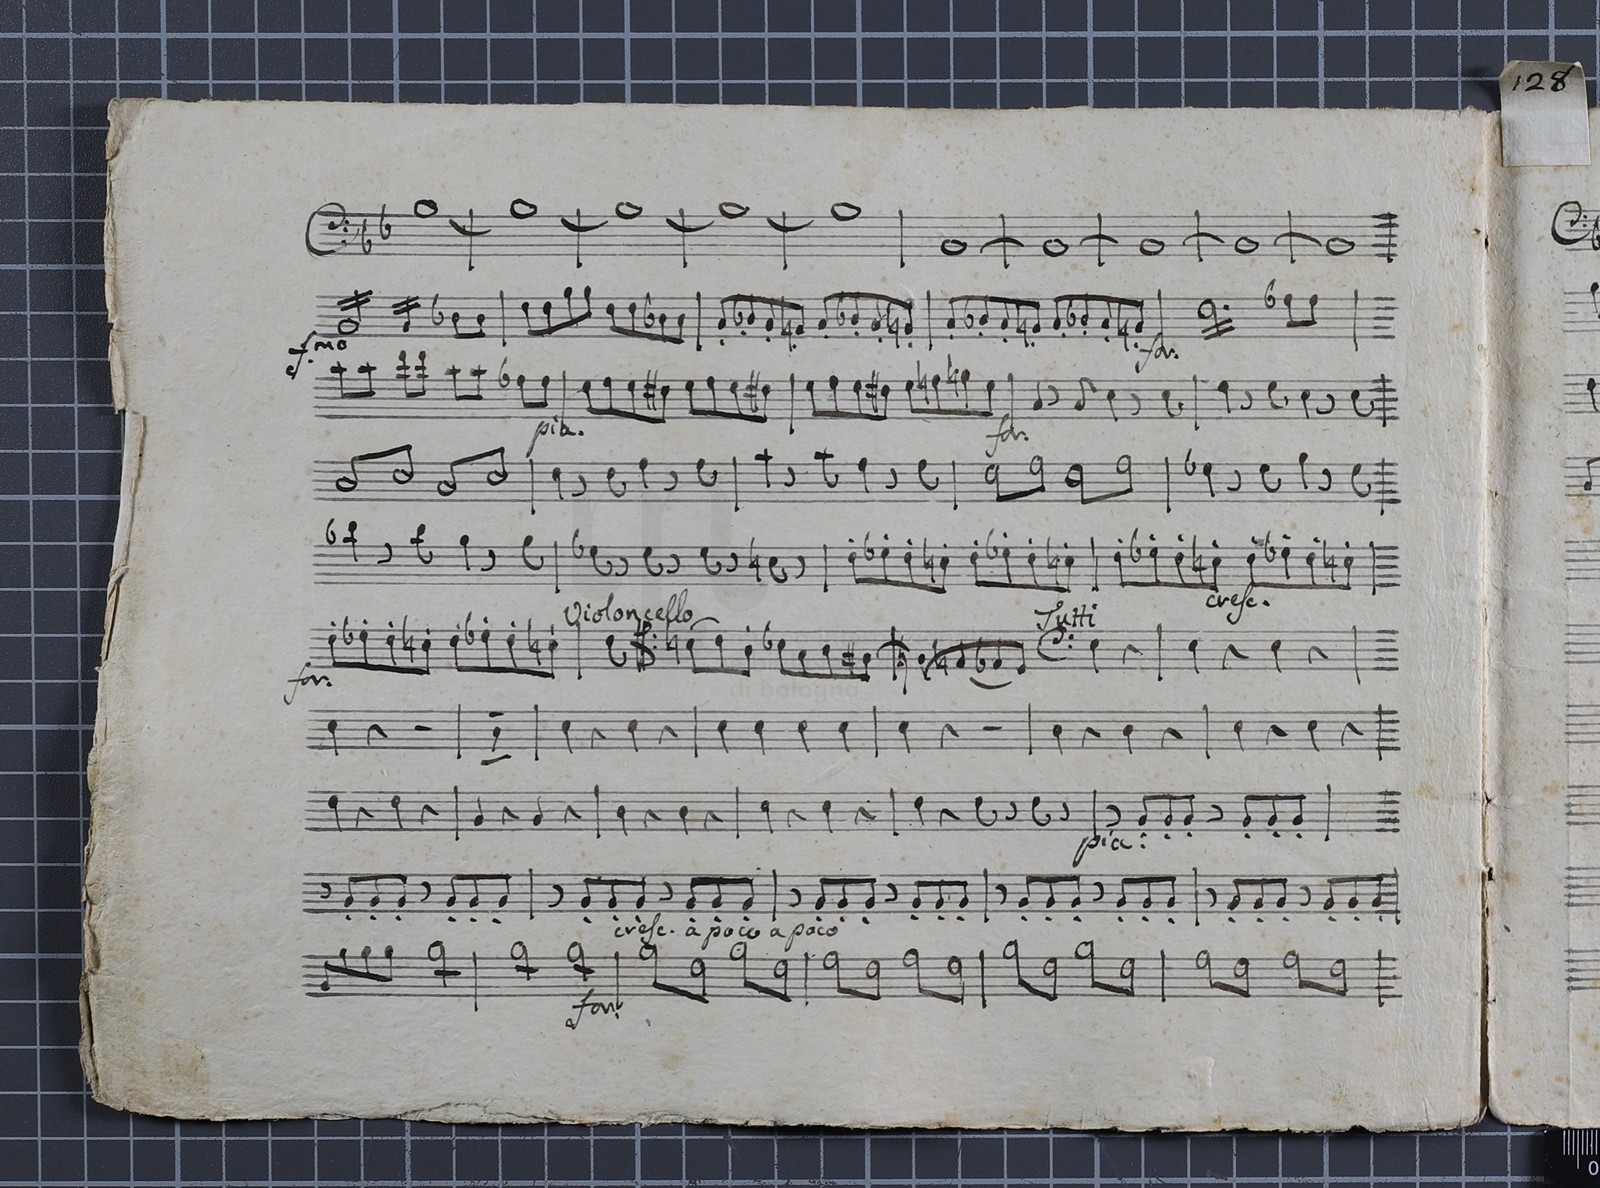 128
f.mo
for.
pia.
for.
cresc.
Violoncello
Tutti
for.
pia:
cresc. à poco a poco
for.
di bologna
0